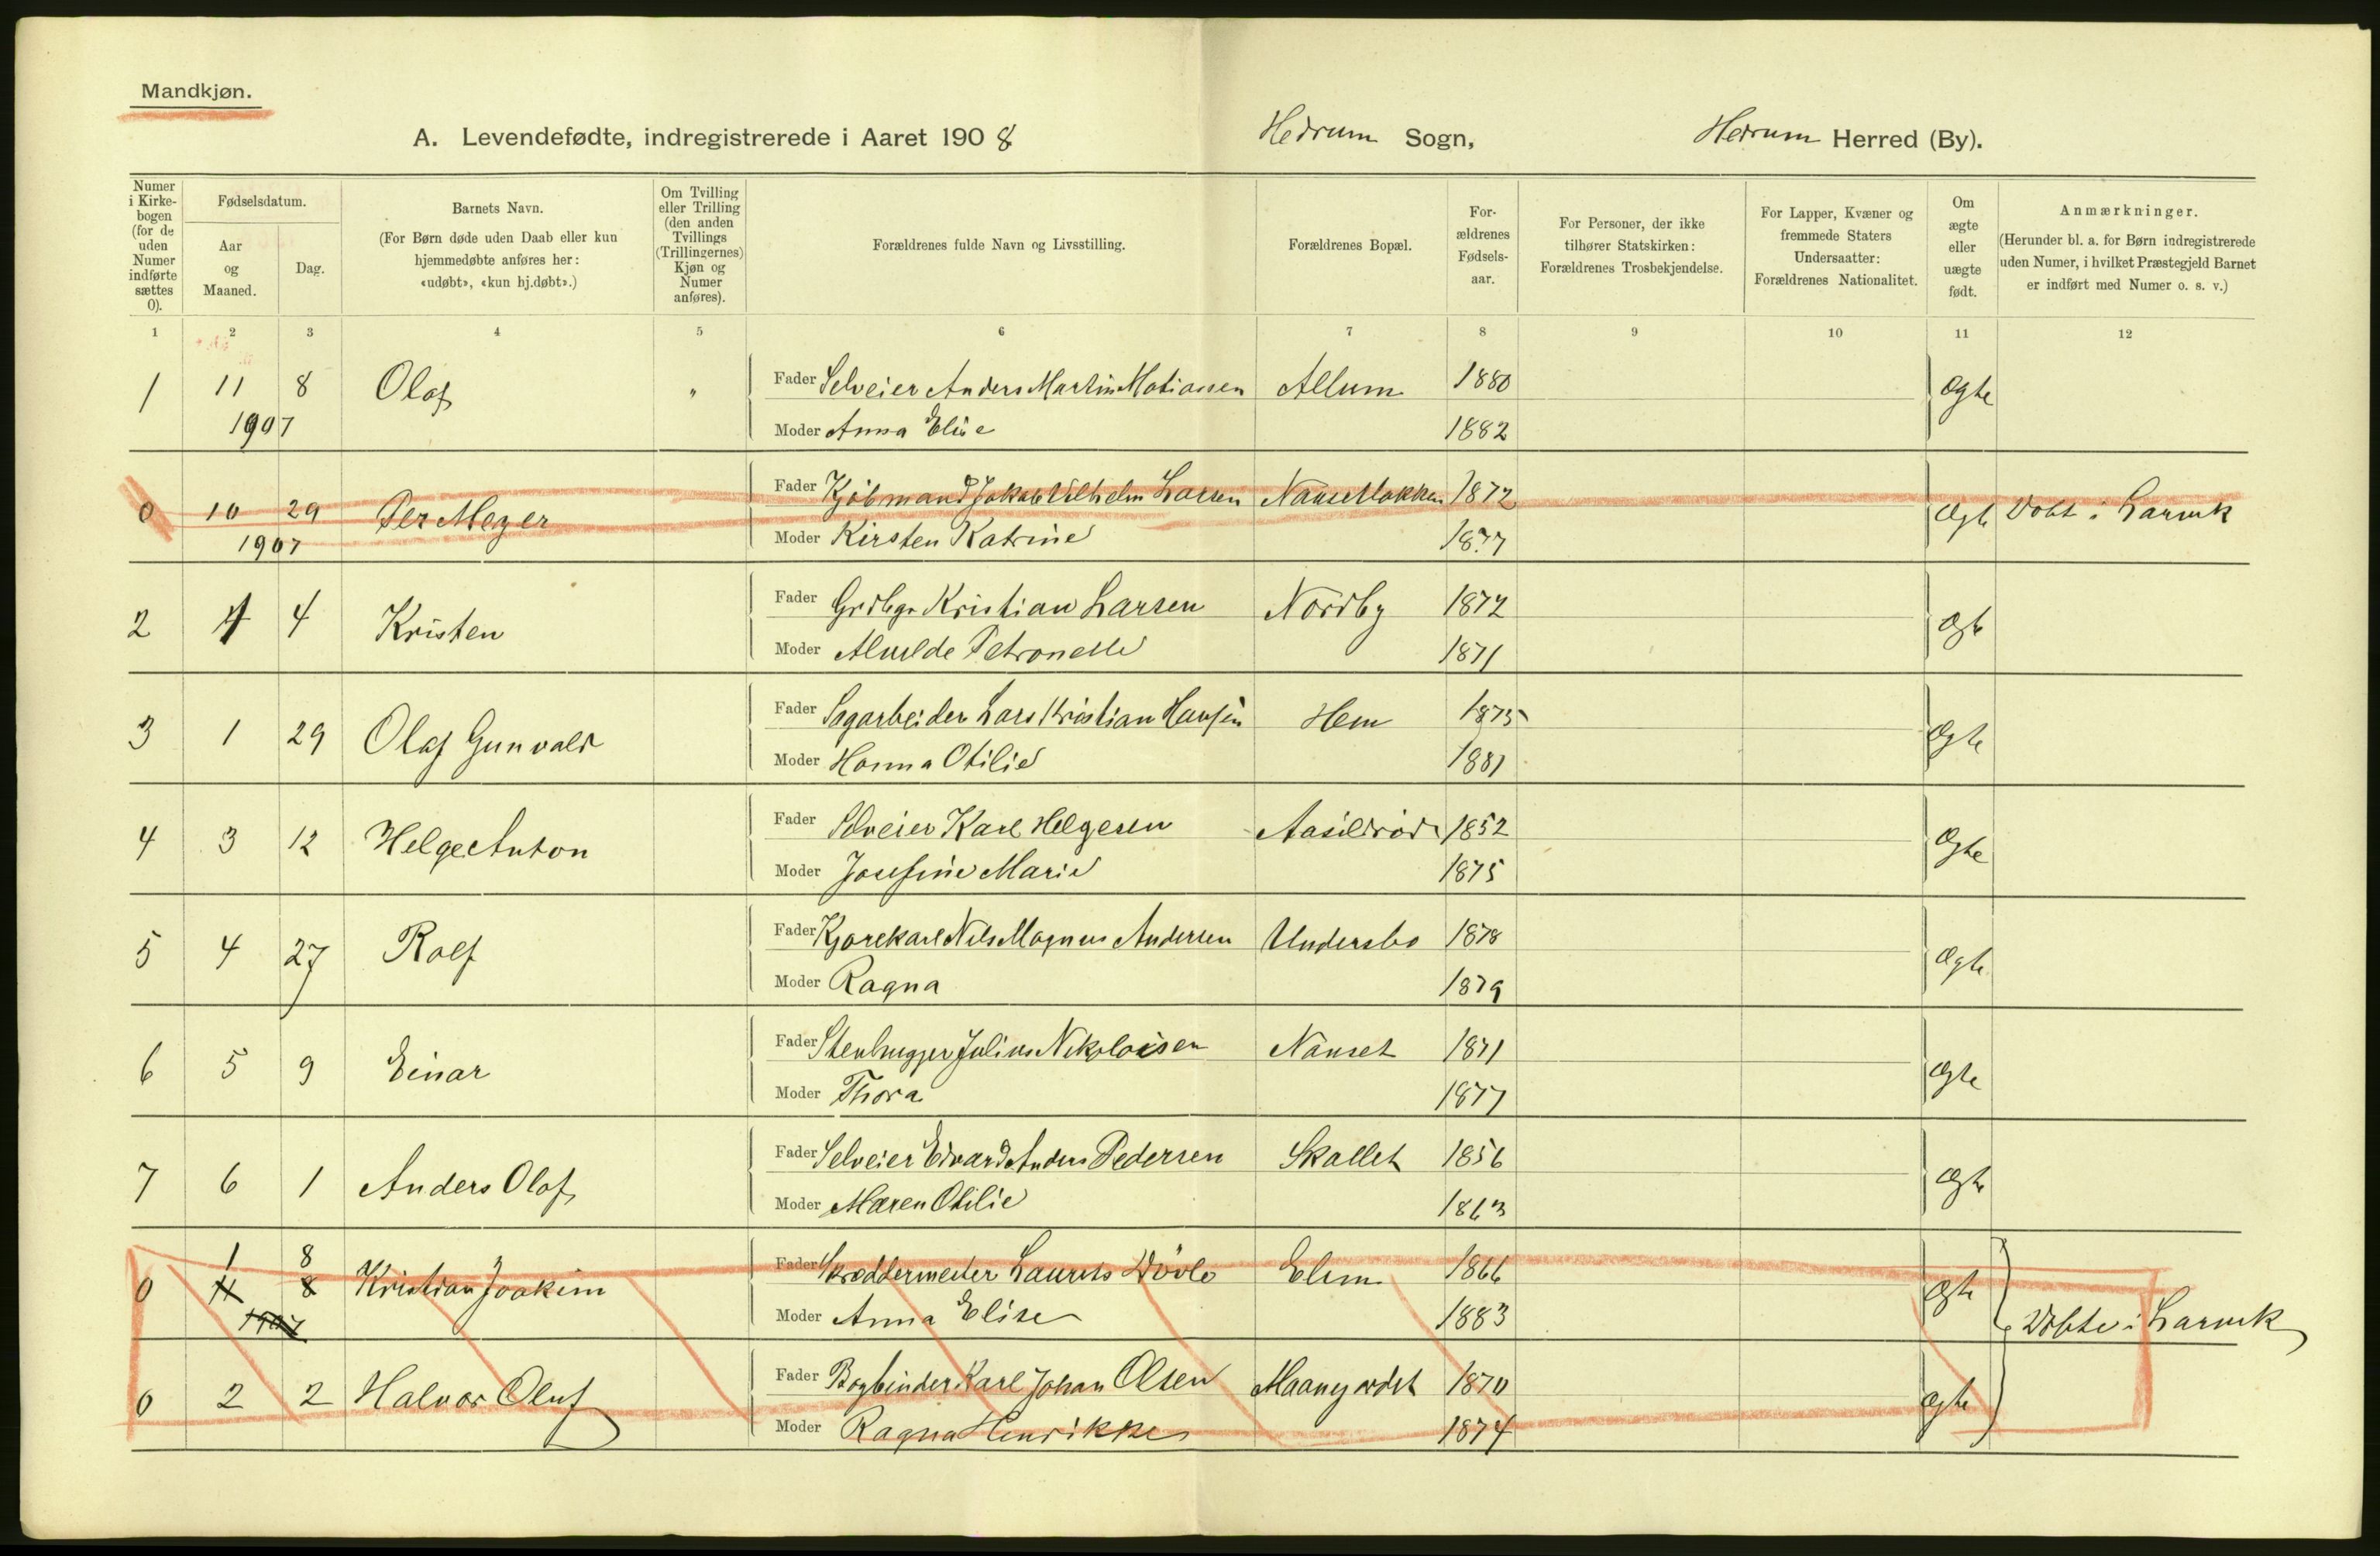 Mandkjøn.
A. Levendefødte, indregistrerede i Aaret 1908 Hedrum Sogn, Hedrum Herred (By).
Numer i Kirkebogen (for de uden Numer indførte sættes 0).
Fødselsdatum.
Aar og Maaned.
Dag.
Barnets Navn.
(For Børn døde uden Daab eller kun hjemmedøbte anføres her: «udøbt», «kun hj.døbt».)
Om Tvilling eller Trilling (den anden Tvillings (Trillingernes) Kjøn og Numer anføres).
Forældrenes fulde Navn og Livsstilling.
Forældrenes Bopæl.
Forældrenes Fødselsaar.
For Personer, der ikke tilhører Statskirken: Forældrenes Trosbekjendelse.
For Lapper, Kvæner og fremmede Staters Undersaatter: Forældrenes Nationalitet.
Om ægte eller uægte født.
Anmærkninger.
(Herunder bl. a. for Børn indregistrerede uden Numer, i hvilket Præstegjeld Barnet er indført med Numer o. s. v.)
1 2 3 4 5 6 7 8 9 10 11 12
1 11 8 Olaf " Fader Selveier Anders Martin Matiassen Allum 1880 Ægte
1907 Moder Anna Elise 1882
0 10 29 Per Meyer Fader Kjøbmand Jakob Vilhelm Larsen Nansetlokken 1872 Ægte Døbt i Larvik
1907 Moder Kirsten Katrine 1877
2 4 Kristen Fader Grdbgr Kristian Larsen Nordby 1872 Ægte
Moder Alvilde Petronelle 1871
3 1 29 Olaf Gunvald Fader Sagarbeider Lars Kristian Hansen Hem 1875 Ægte
Moder Hanna Otilie 1881
4 3 12 Helge Anton Fader Selveier Karl Helgesen 1852 Ægte
Moder Josefine Marie 1875
5 4 27 Rolf Fader Kjørekarl Nils Magnus Andersen Undersbo 1878 Ægte
Moder Ragna 1879
6 5 9 Einar Fader Stenhugger Julius Nikolaisen Nanset 1871 Ægte
Moder Thora 1877
7 6 1 Anders Olaf Fader Selveier Edvard Anders Pedersen Skallet 1856 Ægte
Moder Maren Otilie 1863
1 8
0 11 8 Kristian Joakim Fader Skræddermester Laurits Dövle 1866 Ægte
1907 Moder Anna Elise 1883 Døbte i Larvik
0 2 2 Halvor Oluf Fader Bogbinder Karl Johan Olsen 1870 Ægte
Moder Ragna Henrikke 1874